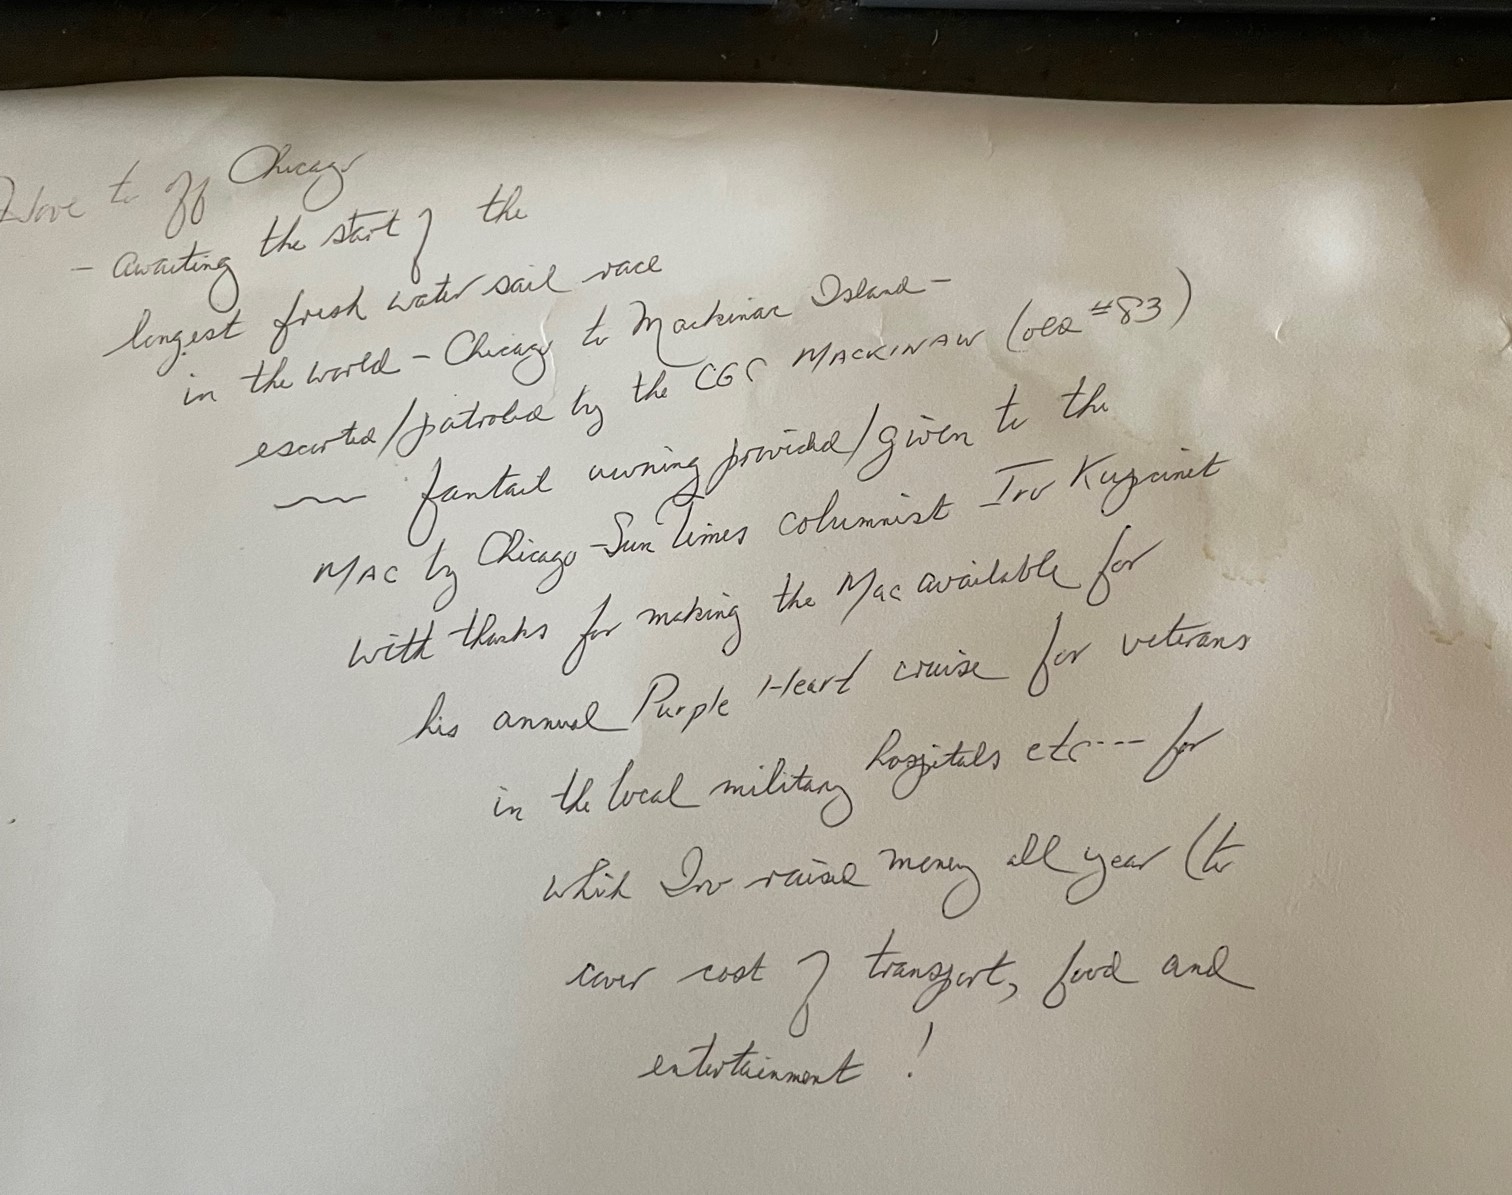 Hove to off Chicago
- awaiting the start of the
longest fresh water sail race
in the world - Chicago to Mackinac Island -
escorted/patroled by the CGC MACKINAW (old #83)
fantail awning provided/given to the
MAC by Chicago-Sun Times columnist Irv Kupcinet
with thanks for making the Mac available for
his annual Purple Heart cruise for veterans
in the local military hospitals etc--- for
which Irv raised money all year (to
cover cost of transport, food and
entertainment!